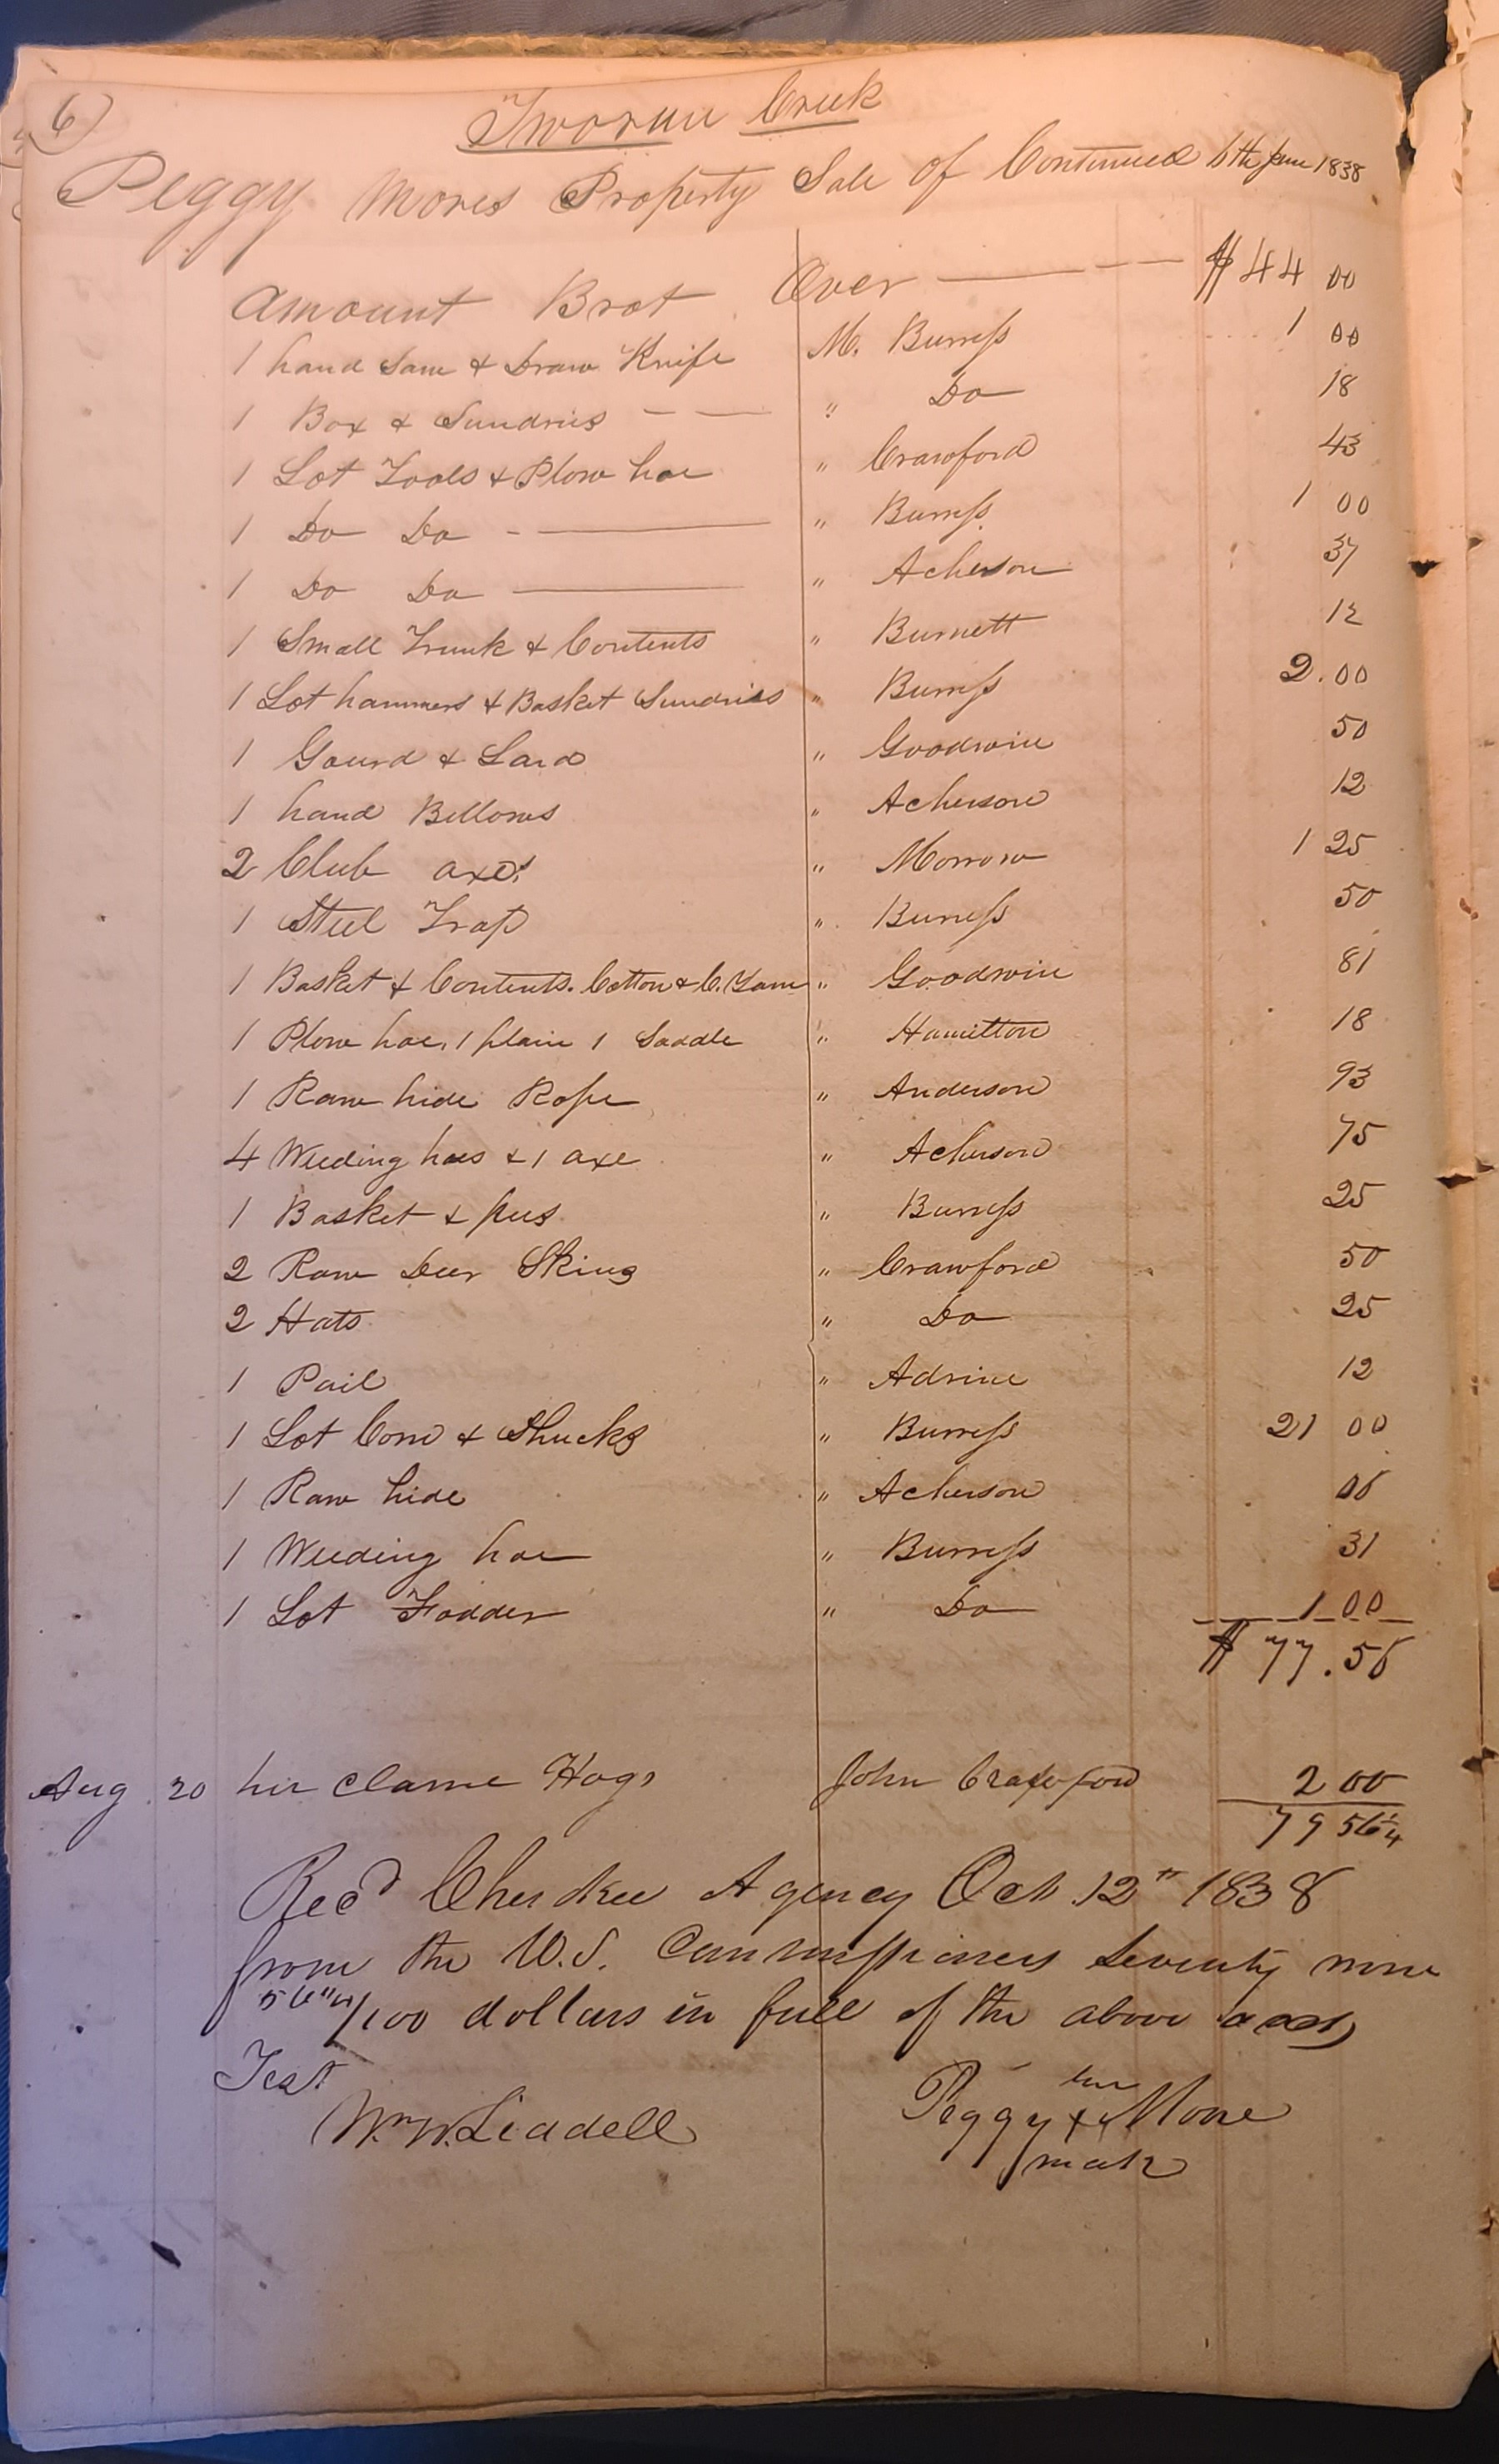 6)
Tworun Creek
Peggy Mores Property Sale of Continued 6th June 1838
Amount Brot Over — — — $ 44 00
1 hand Saw & Draw Knife M. Burress 1 00
1 Box & Sundries — — " Do 18
1 Lot Tools & Plow hoe " Crawford 43
1 Do Do - — " Burress 1 00
1 Do Do — " Acherson 37
1 Small Trunk & Contents " Burnett 12
1 Lot hammers & Basket Sundries " Burress 2.00
1 Gourd & Lard " Goodwin 50
1 hand Bellows " Acherson 12
2 Club axes " Morrow 1 25
1 Steel Trap " Burress 50
1 Basket & Contents. Cotton & C. Yarn " Goodwin 81
1 Plow hoe, 1 plain 1 Saddle " Hamilton 18
1 Raw hide Rope " Anderson 93
4 Weeding hoes & 1 axe " Acherson 75
1 Basket & peas " Burress 25
2 Raw Deer Skins " Crawford 50
2 Hats " Do 25
1 Pail " Adrine 12
1 Lot Corn & Shucks " Burress 21 00
1 Raw hide " Acherson 06
1 Weeding hoe " Burress 31
1 Lot Fodder " Do 1 00
$ 77.56
Aug 20 her Clame Hogs John Crawford 2 00
79 56¼
Recd Cherokee Agency Oct 12th 1838
from the U.S. Commissioners Seventy nine
56¼/100 dollars in full of the above acct
Test
her
Wm W. Liddell Peggy x More
mark